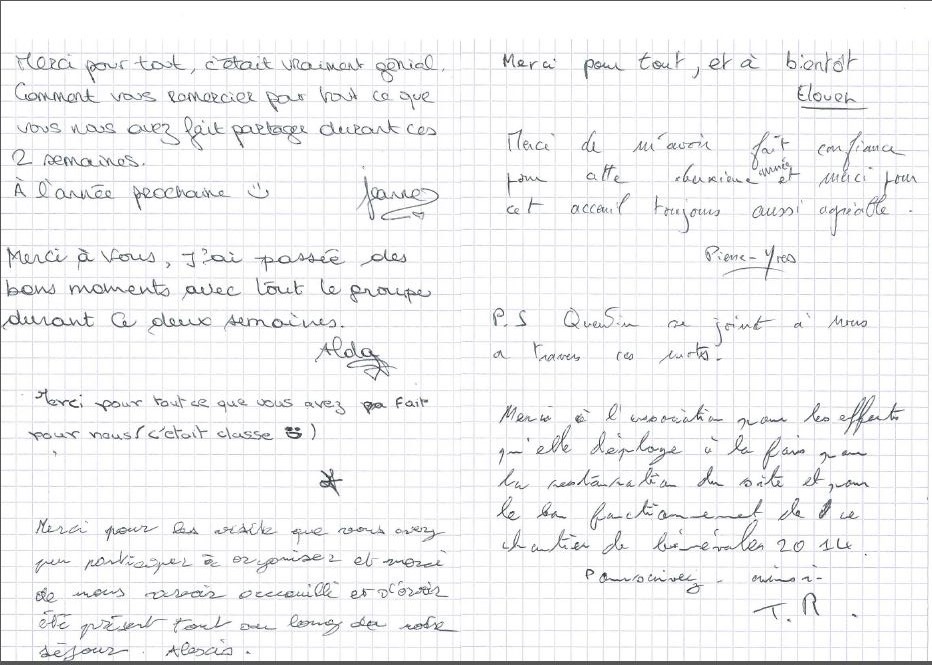 Merci pour tout, c'était vraiment génial.
Comment vous remercier pour tout ce que
vous nous avez fait partager durant ces
2 semaines.
À l'année prochaine
Jeanne
Merci à Vous, J'ai passée des
bons moments avec tout le groupe
durant Ce deux semaines.
Alda
Merci pour tout ce que vous avez fait
pour nous (c'était classe )
Merci pour les visite que vous avez
peu participer à organiser et merci
de nous avoir accouillé et d'avoir
été présent tout au long de notre
séjour. Alexis.
Merci pour tout, et à bientôt
Elouen
Merci de m'avoir fait confiance
pour cette deuxième année et merci pour
cet acceuil toujours aussi agréable.
Pierre-Yves
P.S Quentin se joint à nous
a travers ces mots.
Merci à l'association pour les efforts
qu'elle déploye à la fois pour
la restauration du site et pour
le bon fonctionnement de ce
chantier de bénévoles 2014.
Poursuivez ainsi
T.R.